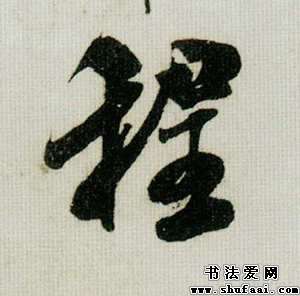 程
书法爱网
www.shufaai.com